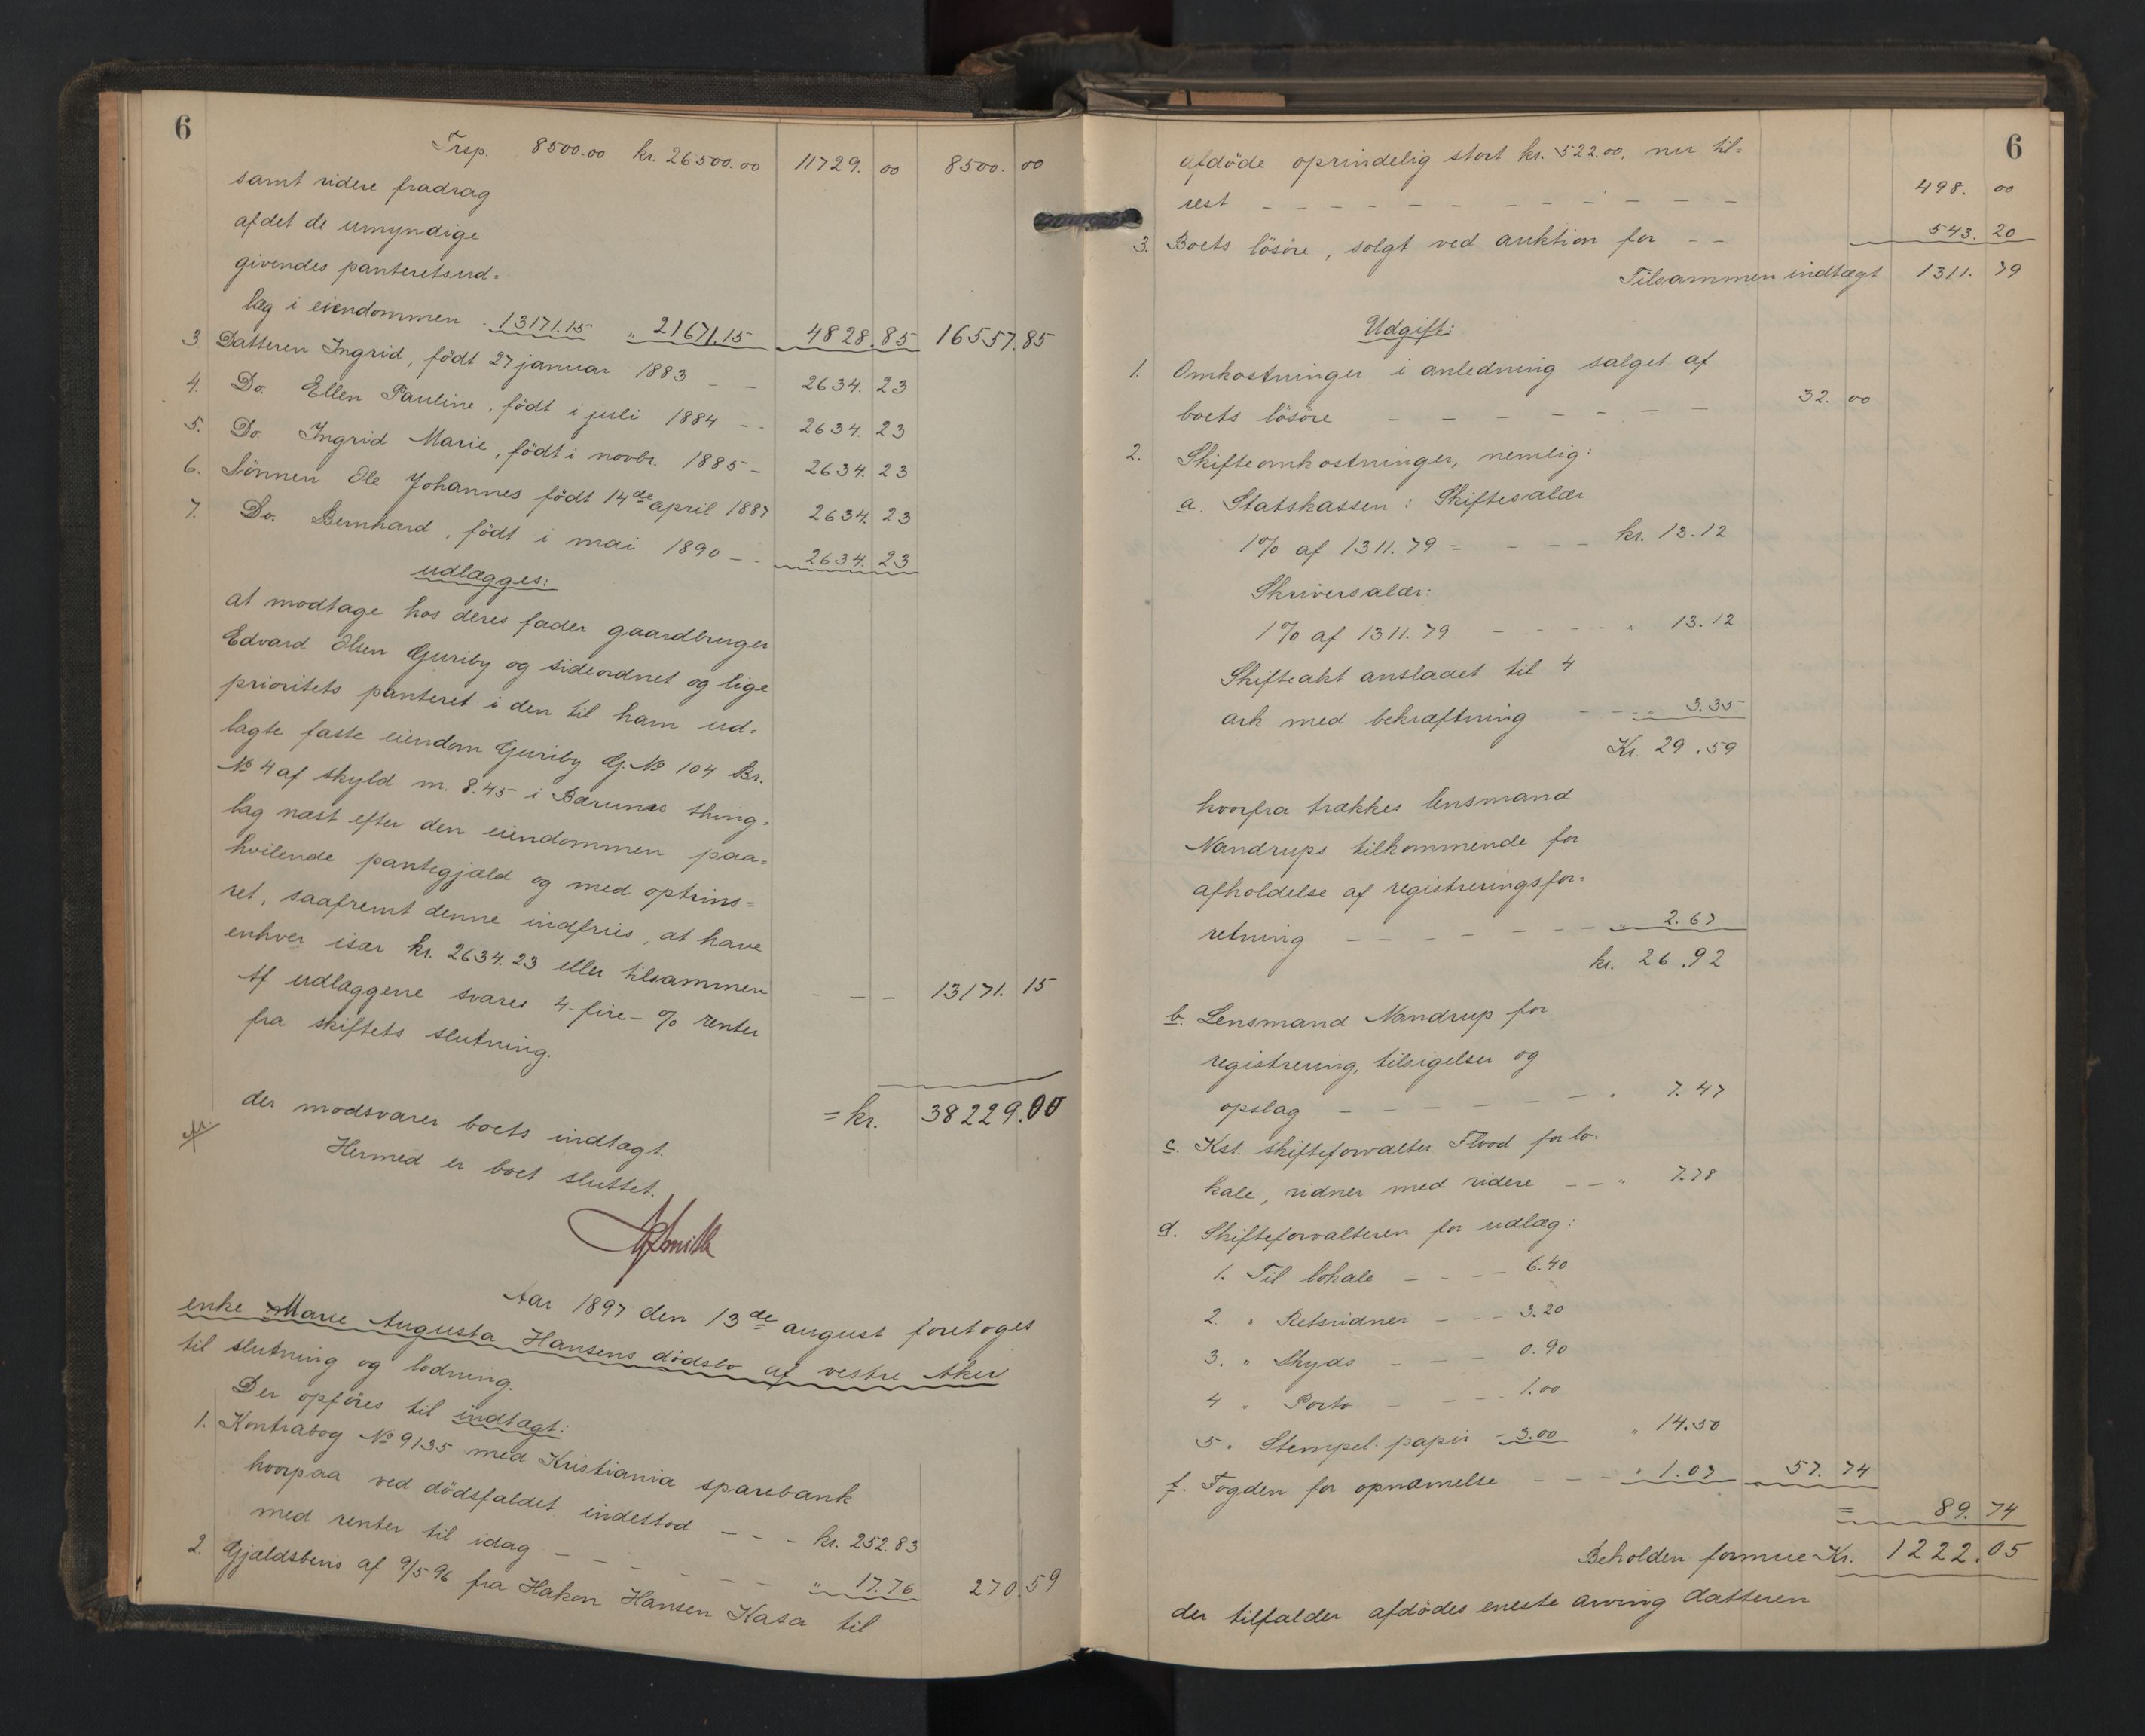 6
Trsp. 8500.00 kr. 26500.00 11729. 00 8500. 00
samt videre fradrag
af det de umyndige
givendes panteretsud=
læg i eiendommen - 13171.15 " 21671.15 4828.85 16557.85
3. Datteren Ingrid, født 27 januar 1883 - - 2634. 23
4. Do. Ellen Pauline, født i juli 1884 - - 2634. 23
5. Do. Ingrid Marie, født i novbr. 1885 - 2634. 23
6. Sønnen Ole Johannes født 14de april 1887 2634. 23
7. Do. Bernhard, født i mai 1890 - - 2634. 23
udlægges:
at modtage hos deres fader gaardbruger
Edvard Olsen Guriby og sideordnet og lige
prioritets panteret i den til ham ud=
lagte faste eiendom Guriby G. No 104 Br.
No 4 af skyld m. 8.45 i Bærums thing=
lag næst efter den eiendommen paa=
hvilende pantegjæld og med optrins=
ret, saafremt denne indfries, at have
enhver især kr. 2634.23 eller tilsammen - - - 13171. 15
Af udlæggene svares 4 - fire - % renter
fra skiftets slutning.
= kr. 38229.00
der modsvarer boets indtægt.
Hermed er boet sluttet.
Aar 1897 den 13de august foretoges
enke Marie Augusta Hansens dødsbo af vestre Aker
til slutning og lodning.
Der opføres til indtægt:
1. Kontrabog No 9135 med Kristiania sparebank
hvorpaa ved dødsfaldet indestod - - - kr. 252.83
med renter til idag - - - - - " 17.76 270.59
2. Gjældsbevis af 9/5 96 fra Hakon Hansen Kasa til
6
afdøde oprindelig stort kr. 522.00, nu til=
rest - - - - - - - - - - - 498. 00
3. Boets løsøre, solgt ved auktion for - - 543. 20
Tilsammen indtægt 1311. 79
Udgift:
1. Omkostninger i anledning salget af
boets løsøre - - - - - - - 32. 00
2. Skifteomkostninger, nemlig:
a. Statskassen: Skiftesalær
1% af 1311.79 = - - - kr. 13.12
Skriversalær:
1% af 1311.79 - - - - " 13.12
Skifteakt anslaaet til 4
ark med bekræftning - - " 3.35
Kr. 29.59
hvorfra trækkes lensmand
Nandrups tilkommende for
afholdelse af registreringsfor=
retning - - - - - - " 2.67
kr. 26.92
b. Lensmand Nandrup for
registrering, tilsigelser og
opslag - - - - - - " 7.47
c. Kst. skifteforvalter Flood for lo-
kale, vidner med videre - - " 7.78
d. Skifteforvalteren for udlæg:
1. Til lokale - - - - 6.40
2. " Retsvidner - - - 3.20
3. " Skyds - - - 0.90
4 " Porto - - - - 1.00
5 " Stempel. papir - 3.00 " 14.50
f. Fogden for opnævnelse - - - " 1.07 57. 74
= 89. 74
Beholden formue Kr. 1222.05
der tilfalder afdødes eneste arving datteren